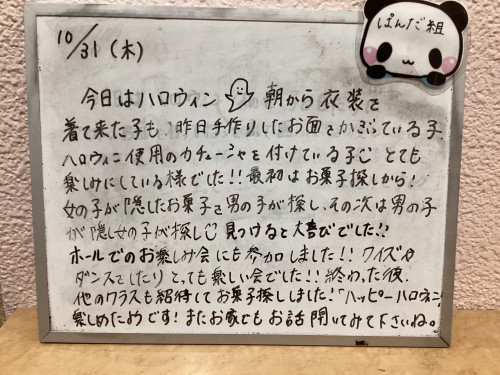 ぱんだ組
10/31(木)
今日はハロウィン 朝から衣装を
着て来た子も、昨日手作りしたお面をかぶっている子、
ハロウィン使用のカチューシャを付けている子、とても
楽しみにしている様でした!!最初はお菓子探しから!
女の子が隠したお菓子を男の子が探し、その次は男の子
が隠し女の子が探し 見つけると大喜びでした!!
ホールでのお楽しみ会にも参加しました!!クイズや
ダンスをしたりとっても楽しい会でした!!終わった後、
他のクラスも招待してお菓子探ししました!"ハッピーハロウィン"
楽しめたようです!またお家でもお話聞いてみて下さいね。